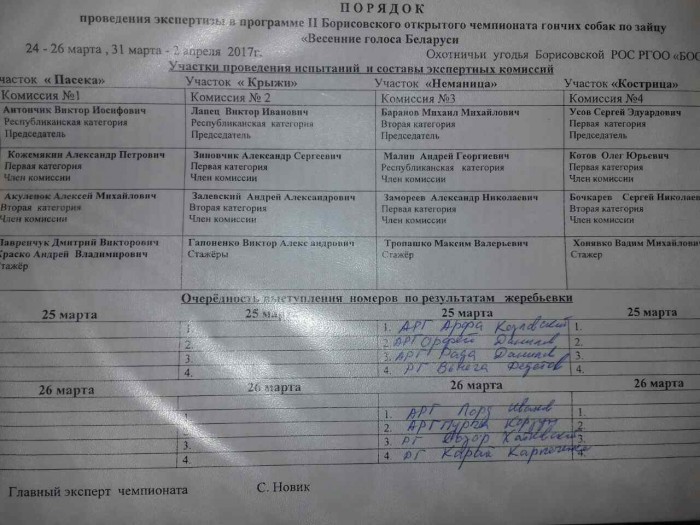 ПОРЯДОК
проведения экспертизы в программе II Борисовского открытого чемпионата гончих собак по зайцу
«Весенние голоса Беларуси
24 - 26 марта , 31 марта - 2 апреля 2017г. Охотничьи угодья Борисовской РОС РГОО «БОС
Участки проведения испытаний и составы экспертных комиссий
часток « Пасека» Участок « Крыжи» Участок «Неманица» Участок «Кострица»
Комиссия №1 Комиссия № 2 Комиссия №3 Комиссия №4
Антончик Виктор Иосифович Лапец Виктор Иванович Баранов Михаил Михайлович Усов Сергей Эдуардович
Республиканская категория Республиканская категория Вторая категория Первая категория
Председатель Председатель Председатель Председатель
Кожемякин Александр Петрович Зиновчик Александр Сергеевич Малин Андрей Георгиевич Котов Олег Юрьевич
Первая категория Первая категория Республиканская категория Первая категория
Член комиссии Член комиссии Член комиссии Член комиссии
Акуленок Алексей Михайлович Залевский Андрей Александрович Замореев Александр Николаевич Бочкарев Сергей Николаев
Вторая категория Вторая категория Первая категория Вторая категория
Член комиссии Член комиссии Член комиссии Член комиссии
Лавренчук Дмитрий Викторович Гапоненко Виктор Алекс андрович Тропашко Максим Валерьевич Хонявко Вадим Михайлович
Краско Андрей Владимирович Стажёры Стажер Стажер
стажёр
Очерёдность выступления номеров по результатам жеребьевки
25 марта 25 марта 25 марта 25 марта
1. 1. АРГ Арфа Козловский 1.
2. 2. АРГ Орфей Данилов 2.
3. 3. АРГ Рада Данилов 3.
4. 4. РГ Федотов 4.
26 марта 26 марта 26 марта 26 марта
1. 1. АРГ Лорд Иванов 1.
2. 2. АРГ Пурга 2.
3. 3. РГ 3.
4. 4. РГ Карай 4.
Главный эксперт чемпионата С. Новик